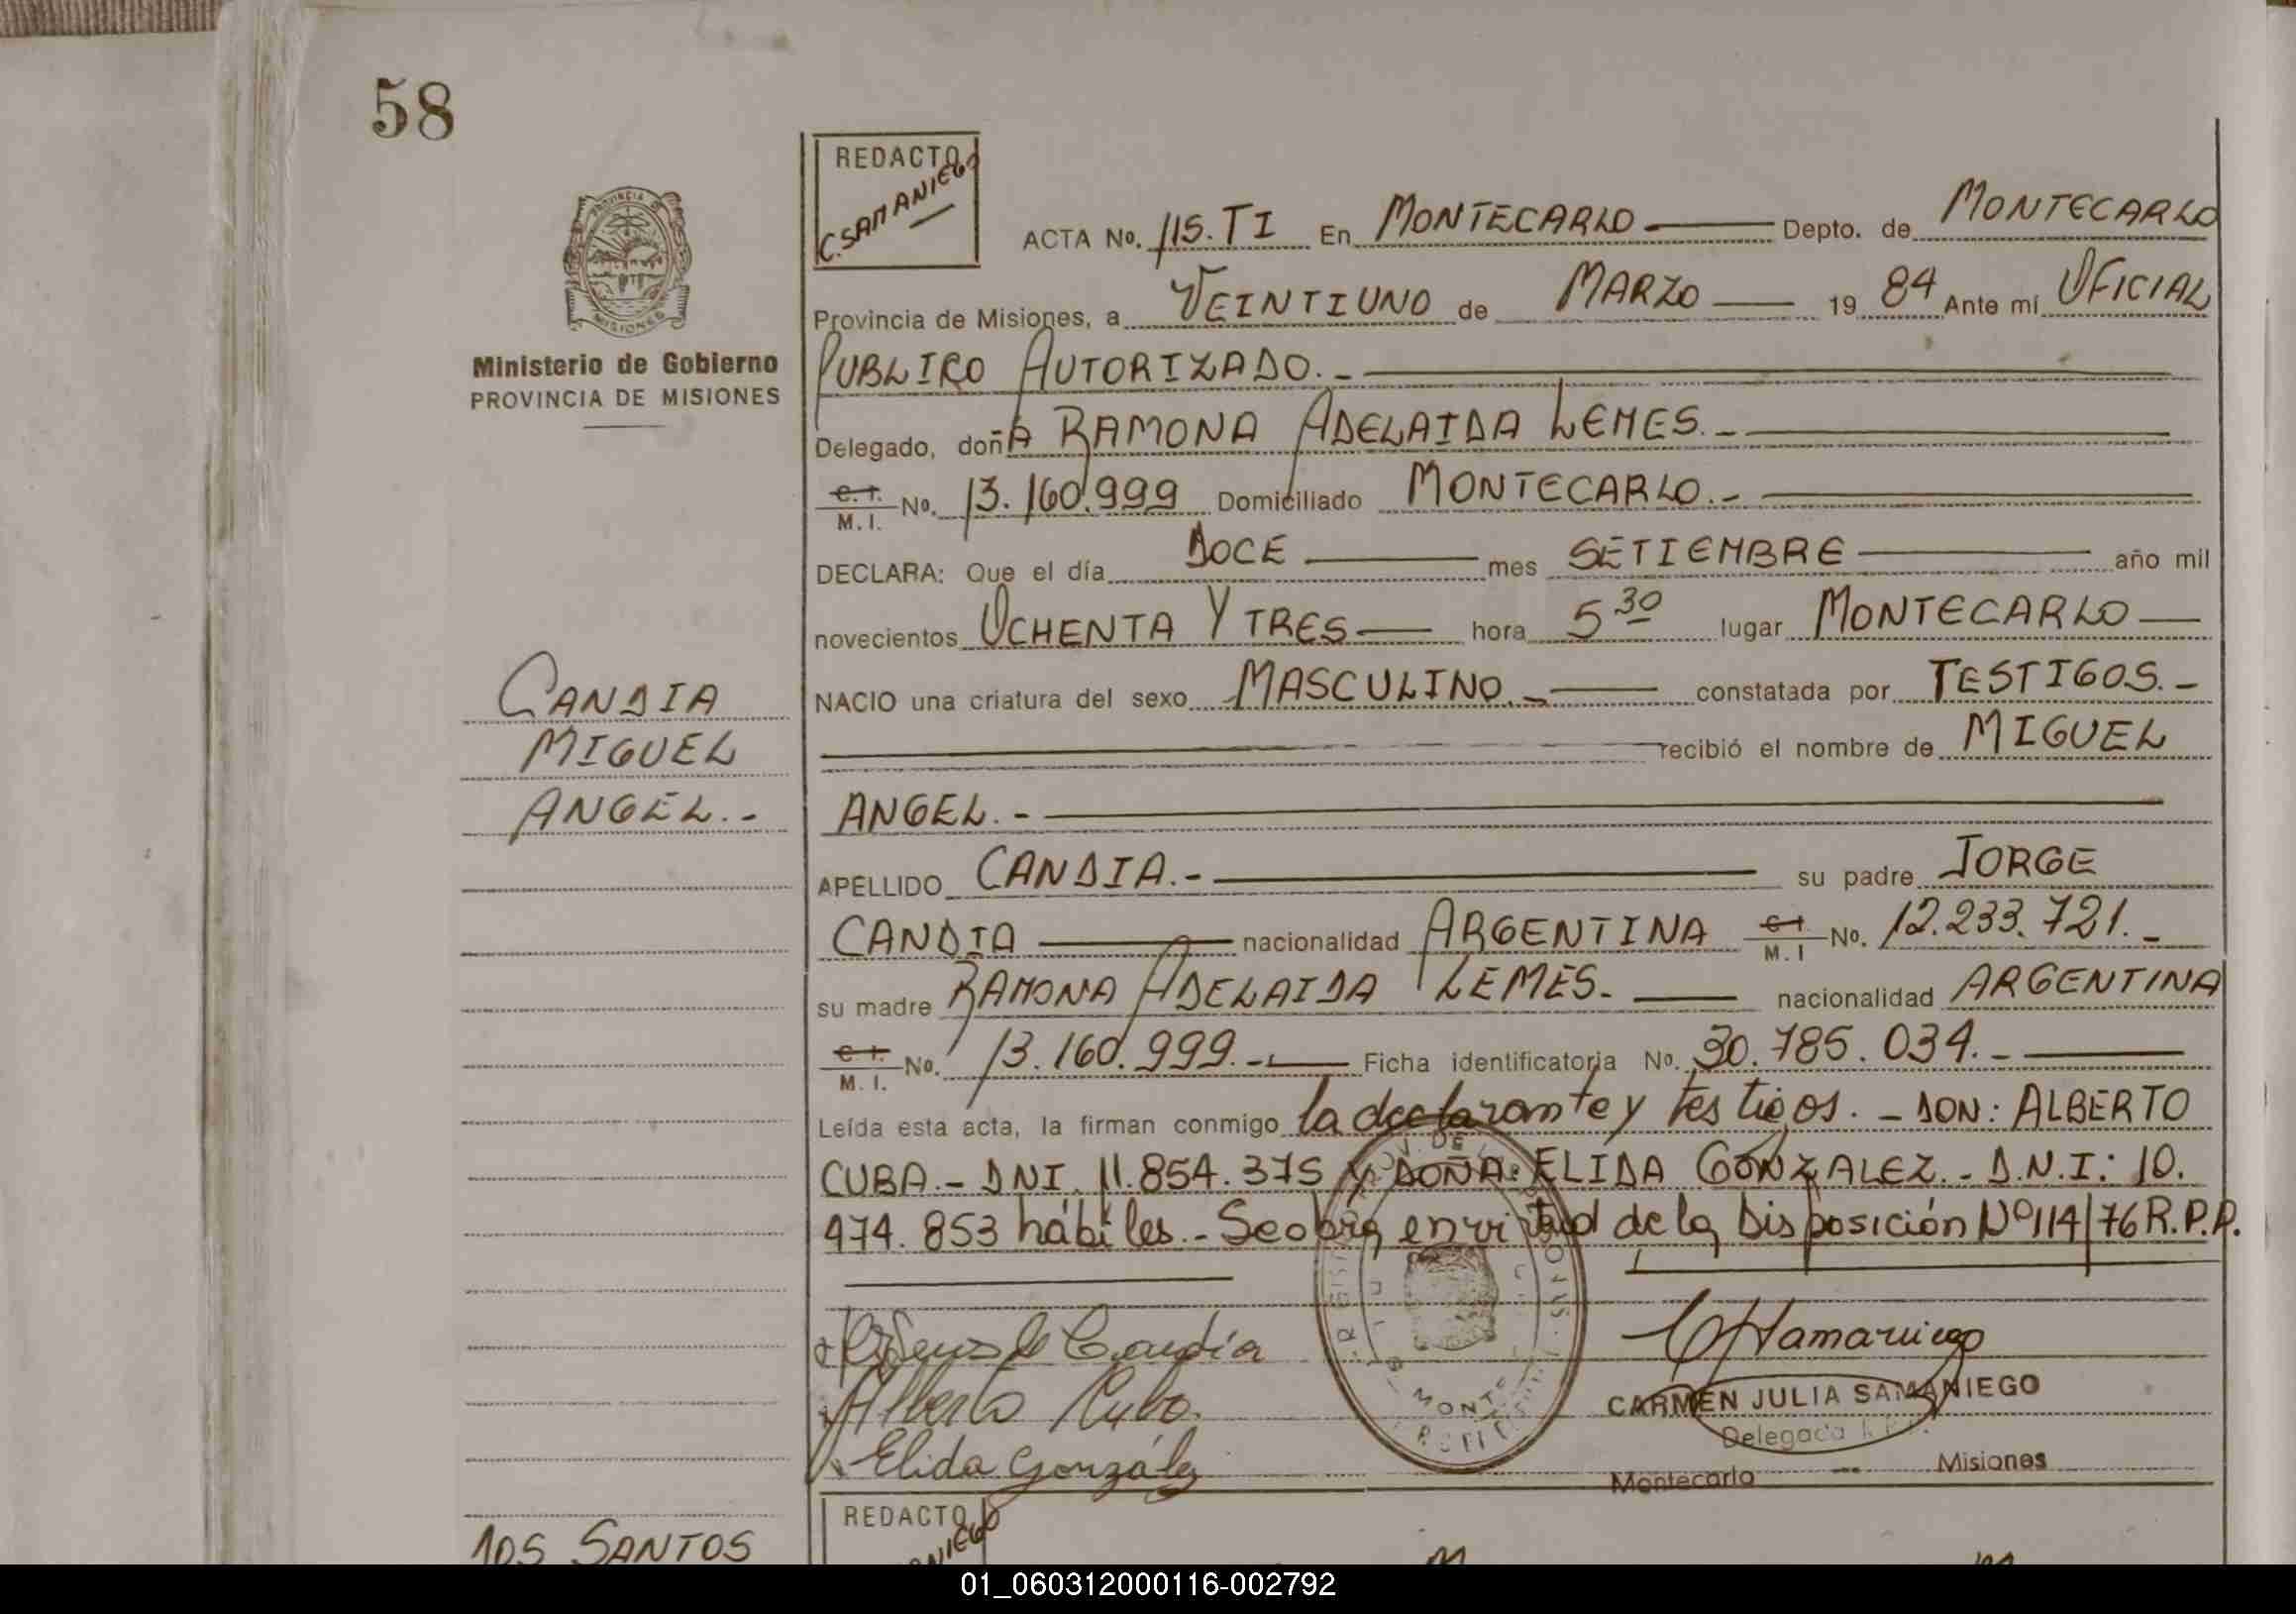 58
REDACTO
C. SAMANIEGO
ACTA No. 115.TI En MONTECARLO Depto. de MONTECARLO
Provincia de Misiones, a VEINTIUNO de MARZO 19 84 Ante mí OFICIAL
PUBLICO AUTORIZADO.-
Ministerio de Gobierno
PROVINCIA DE MISIONES
Delegado, doñA RAMONA ADELAIDA LEMES.-
C. I. M. I. No. 13.160.999 Domiciliado MONTECARLO.-
DECLARA: Que el día DOCE mes SETIEMBRE año mil
novecientos OCHENTA Y TRES hora 5 30 lugar MONTECARLO
NACIO una criatura del sexo MASCULINO.- constatada por TESTIGOS.-
recibió el nombre de MIGUEL
ANGEL.-
CANDIA
MIGUEL
ANGEL.-
APELLIDO CANDIA.- su padre JORGE
CANDIA nacionalidad ARGENTINA C I M. I No. 12.233.721.-
su madre RAMONA ADELAIDA LEMES.- nacionalidad ARGENTINA
C. I. M. I. No. 13.160.999.- Ficha identificatoria No. 30.785.034.-
Leída esta acta, la firman conmigo la declarante y testigos.- DON: ALBERTO
CUBA.- DNI. 11.854.375 Y DOÑA: ELIDA GONZALEZ.- D.N.I: 10.
474.853 hábiles.- Se obra en virtud de la Disposición Nº 114/76 R.P.P.
Candia
Alberto Cuba.
Elida González
CARMEN JULIA SAMANIEGO
Delegada
Montecarlo - Misiones
REDACTO
DOS SANTOS
01_060312000116-002792